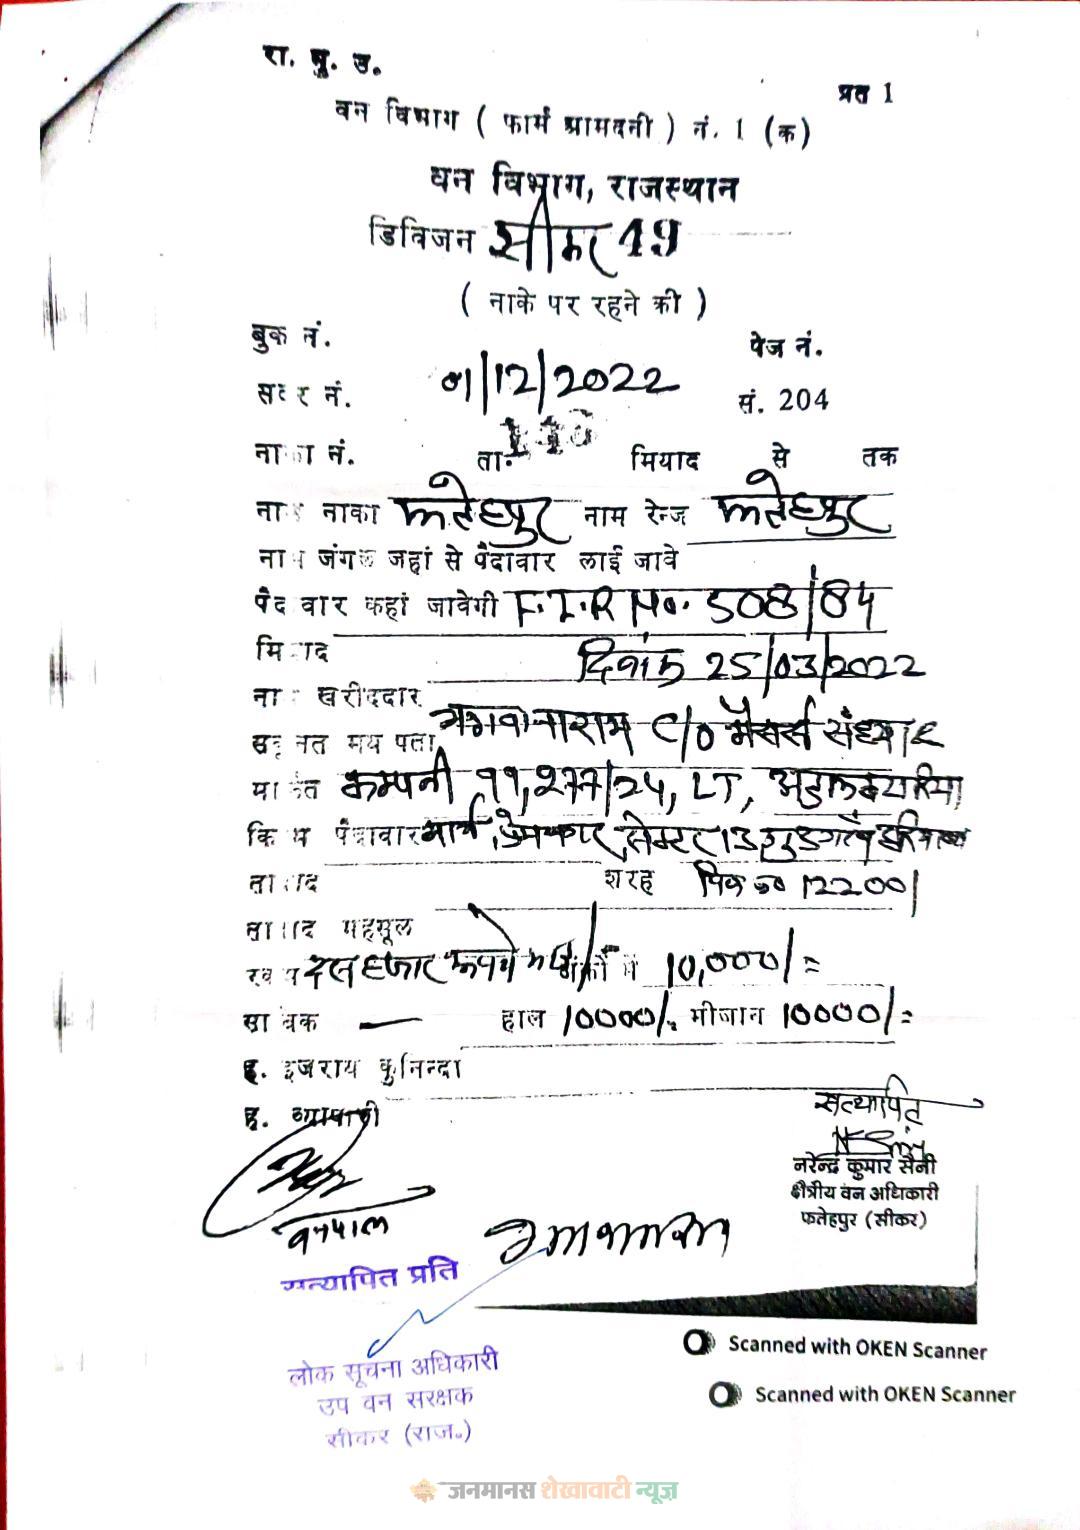 रा. मु. उ.
प्रत 1
वन विभाग ( फार्म आमदनी ) नं. 1 (क)
वन विभाग, राजस्थान
डिविजन सीकर 49
( नाके पर रहने की )
बुक नं. पेज नं.
सदर नं. 01/12/2022 सं. 204
नाका नं. ता. मियाद से तक
नाम नाका फतेहपुर नाम रेन्ज फतेहपुर
नाम जंगल जहां से पैदावार लाई जावे
पैदावार कहां जावेगी F.I.R No. 508/84
मियाद दिनांक 25/03/2022
नाम खरीददार
सकूनत मय पता C/O मैसर्स
मार्फत कम्पनी
किस्म पैदावार मार्ग
तादाद शरह 12200/
तादाद महसूल
रकम दस हजार रूपये मात्र/ अंकों में 10,000/=
साबिक — हाल 10000/= मीजान 10000/=
ह. इजराय कुनिन्दा
ह. व्यापारी
सत्यापित
नरेन्द्र कुमार सैनी
क्षेत्रीय वन अधिकारी
फतेहपुर (सीकर)
वनपाल
सत्यापित प्रति
लोक सूचना अधिकारी
उप वन सरक्षक
सीकर (राज०)
Scanned with OKEN Scanner
Scanned with OKEN Scanner
जनमानस शेखावाटी न्यूज़